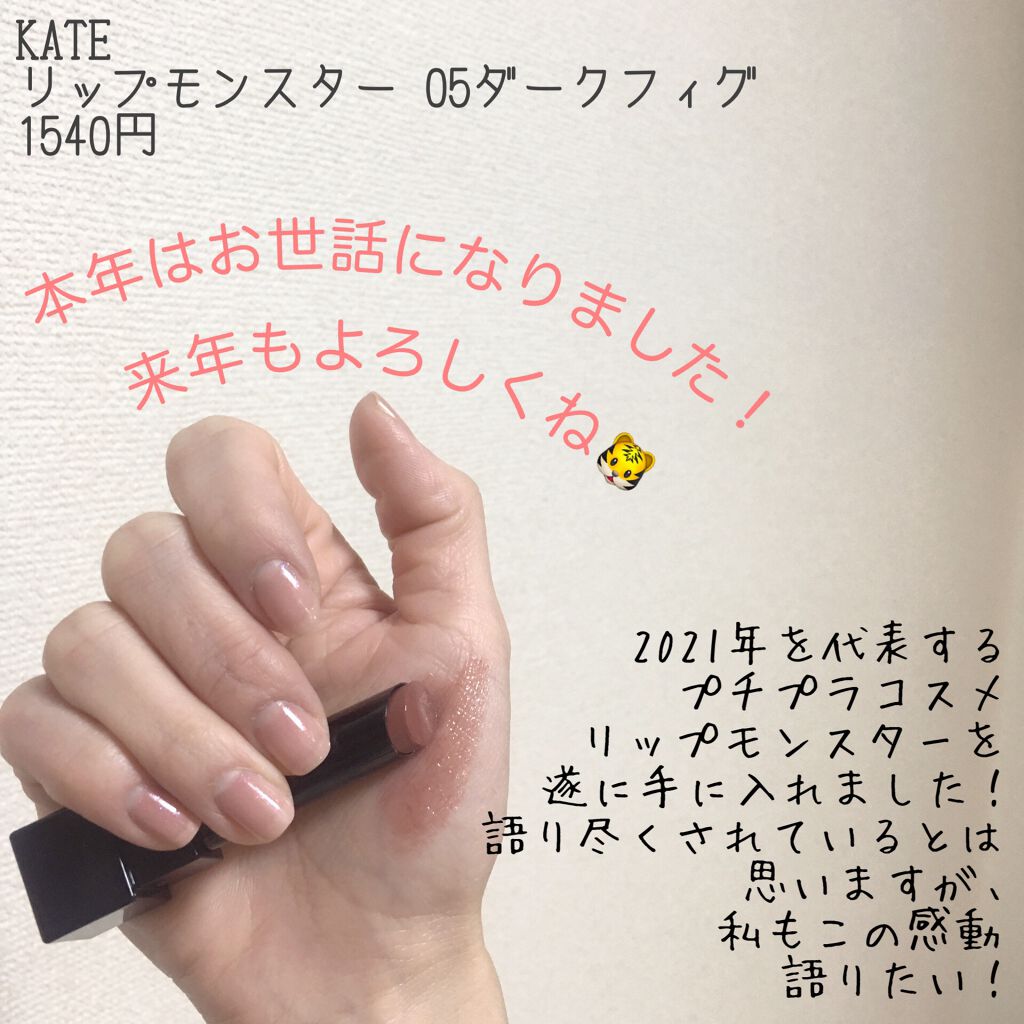 KATE
リップモンスター 05ダークフィグ
1540円
本年はお世話になりました！
来年もよろしくね🐯
2021年を代表する
プチプラコスメ
リップモンスターを
遂に手に入れました！
語り尽くされているとは
思いますが、
私もこの感動
語りたい！